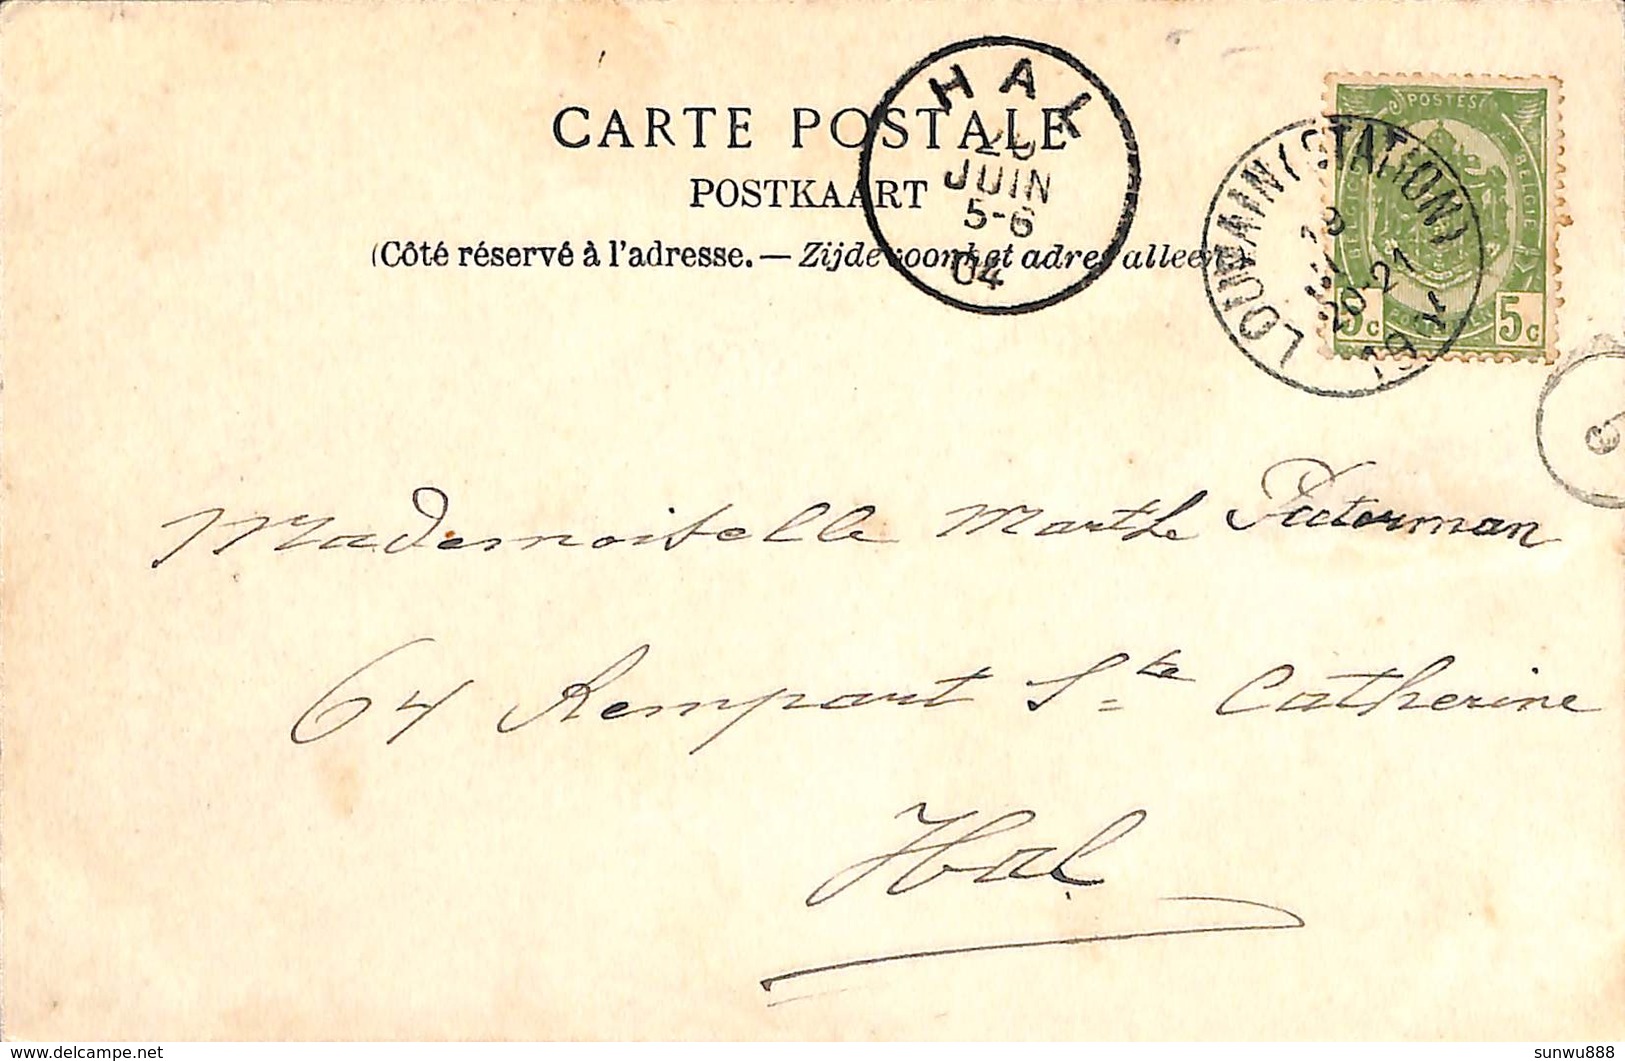 HAL
CARTE POSTALE
JUIN
POSTKAART
5-6
(Côté réservé à l'adresse. — Zijde voor het adres alleen
04
LOUVAIN (STATION)
20-21
POSTES
BELGIQUE
BELGIE
5c
5c
Mademoiselle Marthe
64 Rempart Ste Catherine
Hal
www.delcampe.net
sunwu888